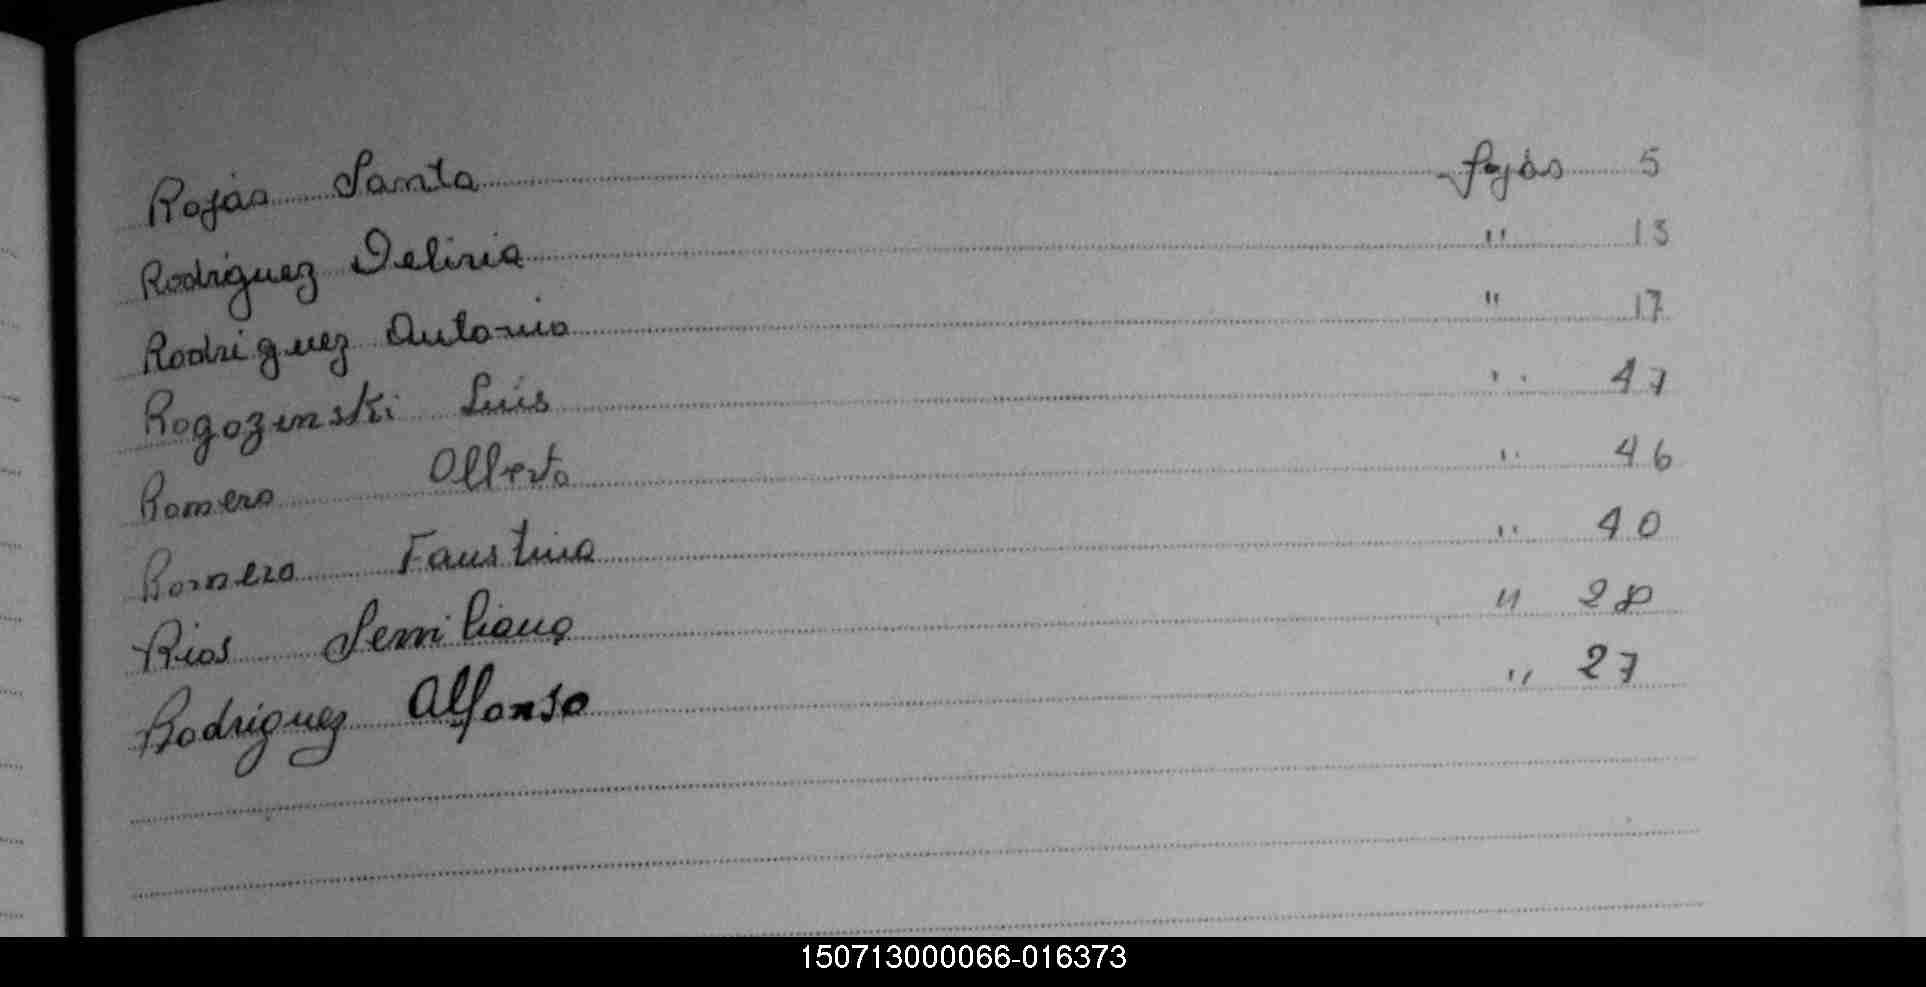 Rojas Santa fojas 5
Rodriguez Deliria " 13
Rodriguez Antonio " 17
Rogozinski Luis " 47
Romero Alberto " 46
Romero Faustino " 40
Rios Semiliano " 28
Rodriguez Alfonso " 27
150713000066-016373